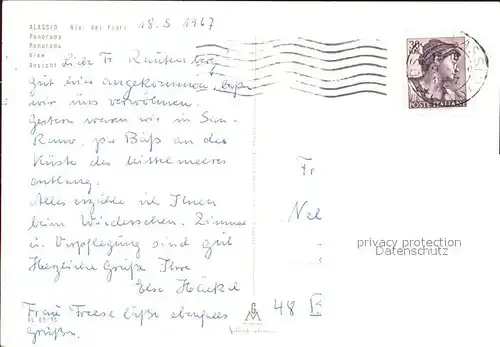 ALASSIO Riv. dei Fiori
Panorama
Panorama
View
Ansicht
18.5.1967
Liebe Fr. Rautenberg
gut hier angekommen, laßen
wir uns verwöhnen.
Gestern waren wir in San-
Remo, per Buß an der
Küste des Mittelmeeres
entlang.
Alles erzähle ich Ihnen
beim Wiedersehen. Zimmer
u. Verpflegung sind gut
Herzliche Grüße Ihre
Else Häckel
Frau Freese läßt ebenfalls
Grüßen.
30
POSTE ITALIANE
Fr
Nel
48
privacy protection
Datenschutz